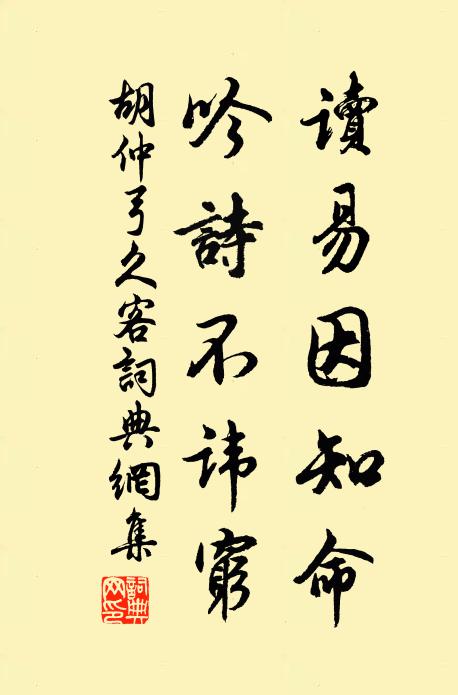 讀易因知命
吟詩不諱窮
胡仲弓久客詞典網集
詞典網印